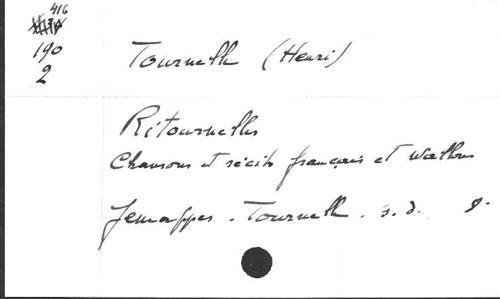 416
190
2
Tournelle (Henri)
Ritournelles
Chansons et récits français et wallons
Jemappes. Tournelle. s.d. 8.